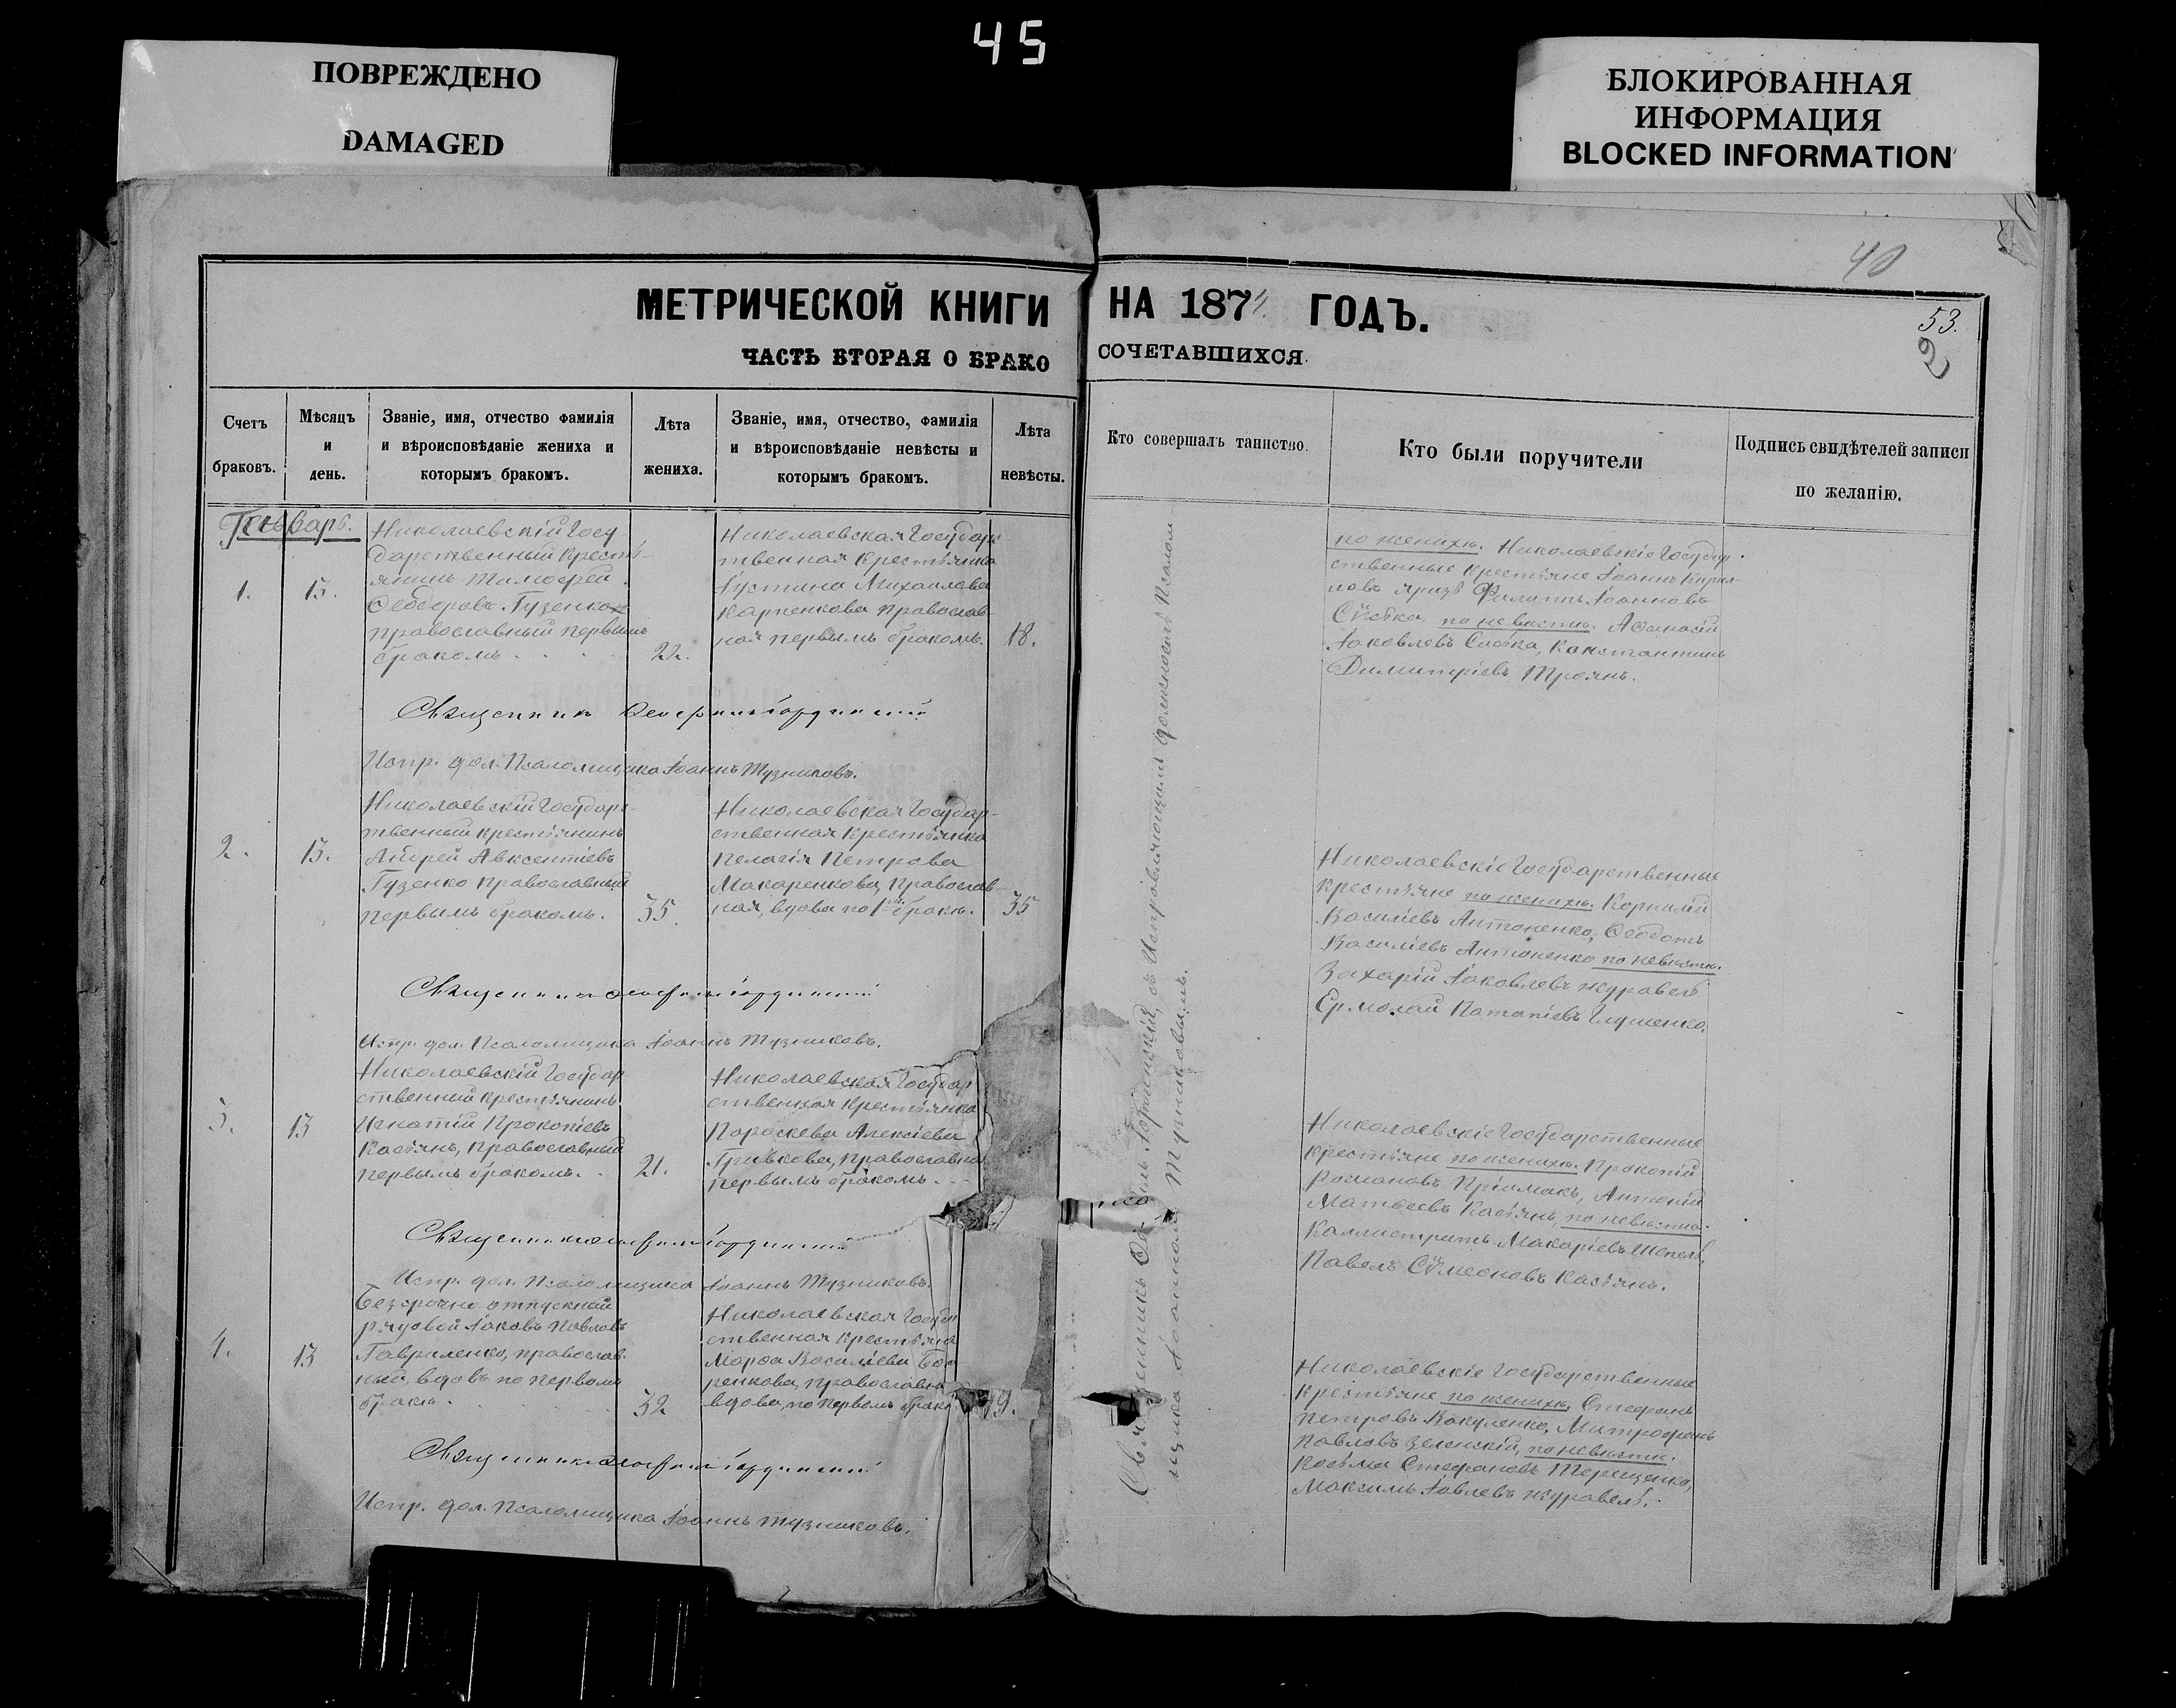 45
ПОВРЕЖДЕНО
DAMAGED
БЛОКИРОВАННАЯ
ИНФОРМАЦИЯ
BLOCKED INFORMATION
40
МЕТРИЧЕСКОЙ КНИГИ НА 1874 ГОДЪ.
53.
2
ЧАСТЬ ВТОРАЯ О БРАКОСОЧЕТАВШИХСЯ.
Счетъ
браковъ.
Мѣсяцъ
и
день.
Званіе, имя, отчество фамилія
и вѣроисповѣданіе жениха и
которымъ бракомъ.
Лѣта
жениха.
Званіе, имя, отчество, фамилія
и вѣроисповѣданіе невѣсты и
которымъ бракомъ.
Лѣта
невѣсты.
Кто совершалъ таинство.
Кто были поручители
Подпись свидѣтелей записи
по желанію.
Генварь.
1.
13.
Николаевскій Госу-
дарственный Кресть-
янинъ Тимоѳей
Ѳеодоровъ Гузенко
православный первымъ
бракомъ
22.
Николаевская Государ-
ственная Крестьянка
Іустина Михаилова
Карпенкова Православ-
ная первымъ бракомъ.
18.
по женихѣ. Николаевскіе Государ-
ственные Крестьяне Іоаннъ Кирил-
ловъ Филиппъ Іоанновъ
по невѣстѣ. Аѳанасій
Іаковлевъ Константинъ
Димитріевъ Троянъ.
Священникъ
Испр. дол. Псаломщика Іоаннъ Тузниковъ.
2.
13.
Николаевскій Государс-
твенный крестьянинъ
Андрей Авксентіевъ
Гузенко Православный
первымъ бракомъ.
35.
Николаевская Государ-
ственная Крестьянка
Пелагія Петрова
Макаренкова, Православ-
ная, вдова по 1мъ бракѣ.
35
Николаевскіе Государственные
Крестьяне по женихѣ. Корнилій
Василіевъ Антоненко, Ѳеодотъ
Василіевъ Антоненко по невѣстѣ.
Захарій Іаковлевъ Журавель
Ермолай Потапіевъ Глущенко.
Священникъ
Испр. дол. Псаломщика Іоаннъ Тузниковъ.
3.
13
Николаевскій Государ-
ственный Крестьянинъ
Игнатій Прокопіевъ
Касьянъ, Православный
первымъ бракомъ.
21.
Николаевская Государ
ственная Крестьянка
Параскева Алексіева
Гривкова, Православная
первымъ бракомъ.
Николаевскіе Государственные
Крестьяне по женихѣ. Прокопій
Романовъ Пріймакъ, Антоній
Матѳеевъ Касьянъ, по невѣстѣ.
Каллистратъ Макаріевъ Шепель,
Павелъ Сѵмеоновъ Касьянъ.
Священникъ
Испр. дол. Псаломщика Іоаннъ Тузниковъ.
4.
13
Безсрочно отпускный
рядовой Іаковъ Павловъ
Гавриленко, православ-
ный, вдовъ по первомъ
бракѣ.
32
Николаевская Госуд
ственная Крестьянка
Марѳа Василіева
ренкова, православна
вдова, по первомъ бракѣ
Николаевскіе Государственные
Крестьяне по женихѣ, Стефанъ
Петровъ Вакуленко, Митрофанъ
Павловъ Зеленскій, по невѣстѣ.
Косьма Стефановъ Терещенко,
Максимъ Журавель.
Священникъ
Испр. дол. Псаломщика Іоаннъ Тузниковъ.
съ Исправляющимъ должность Псалом-
щика Іоанномъ Тузниковымъ.